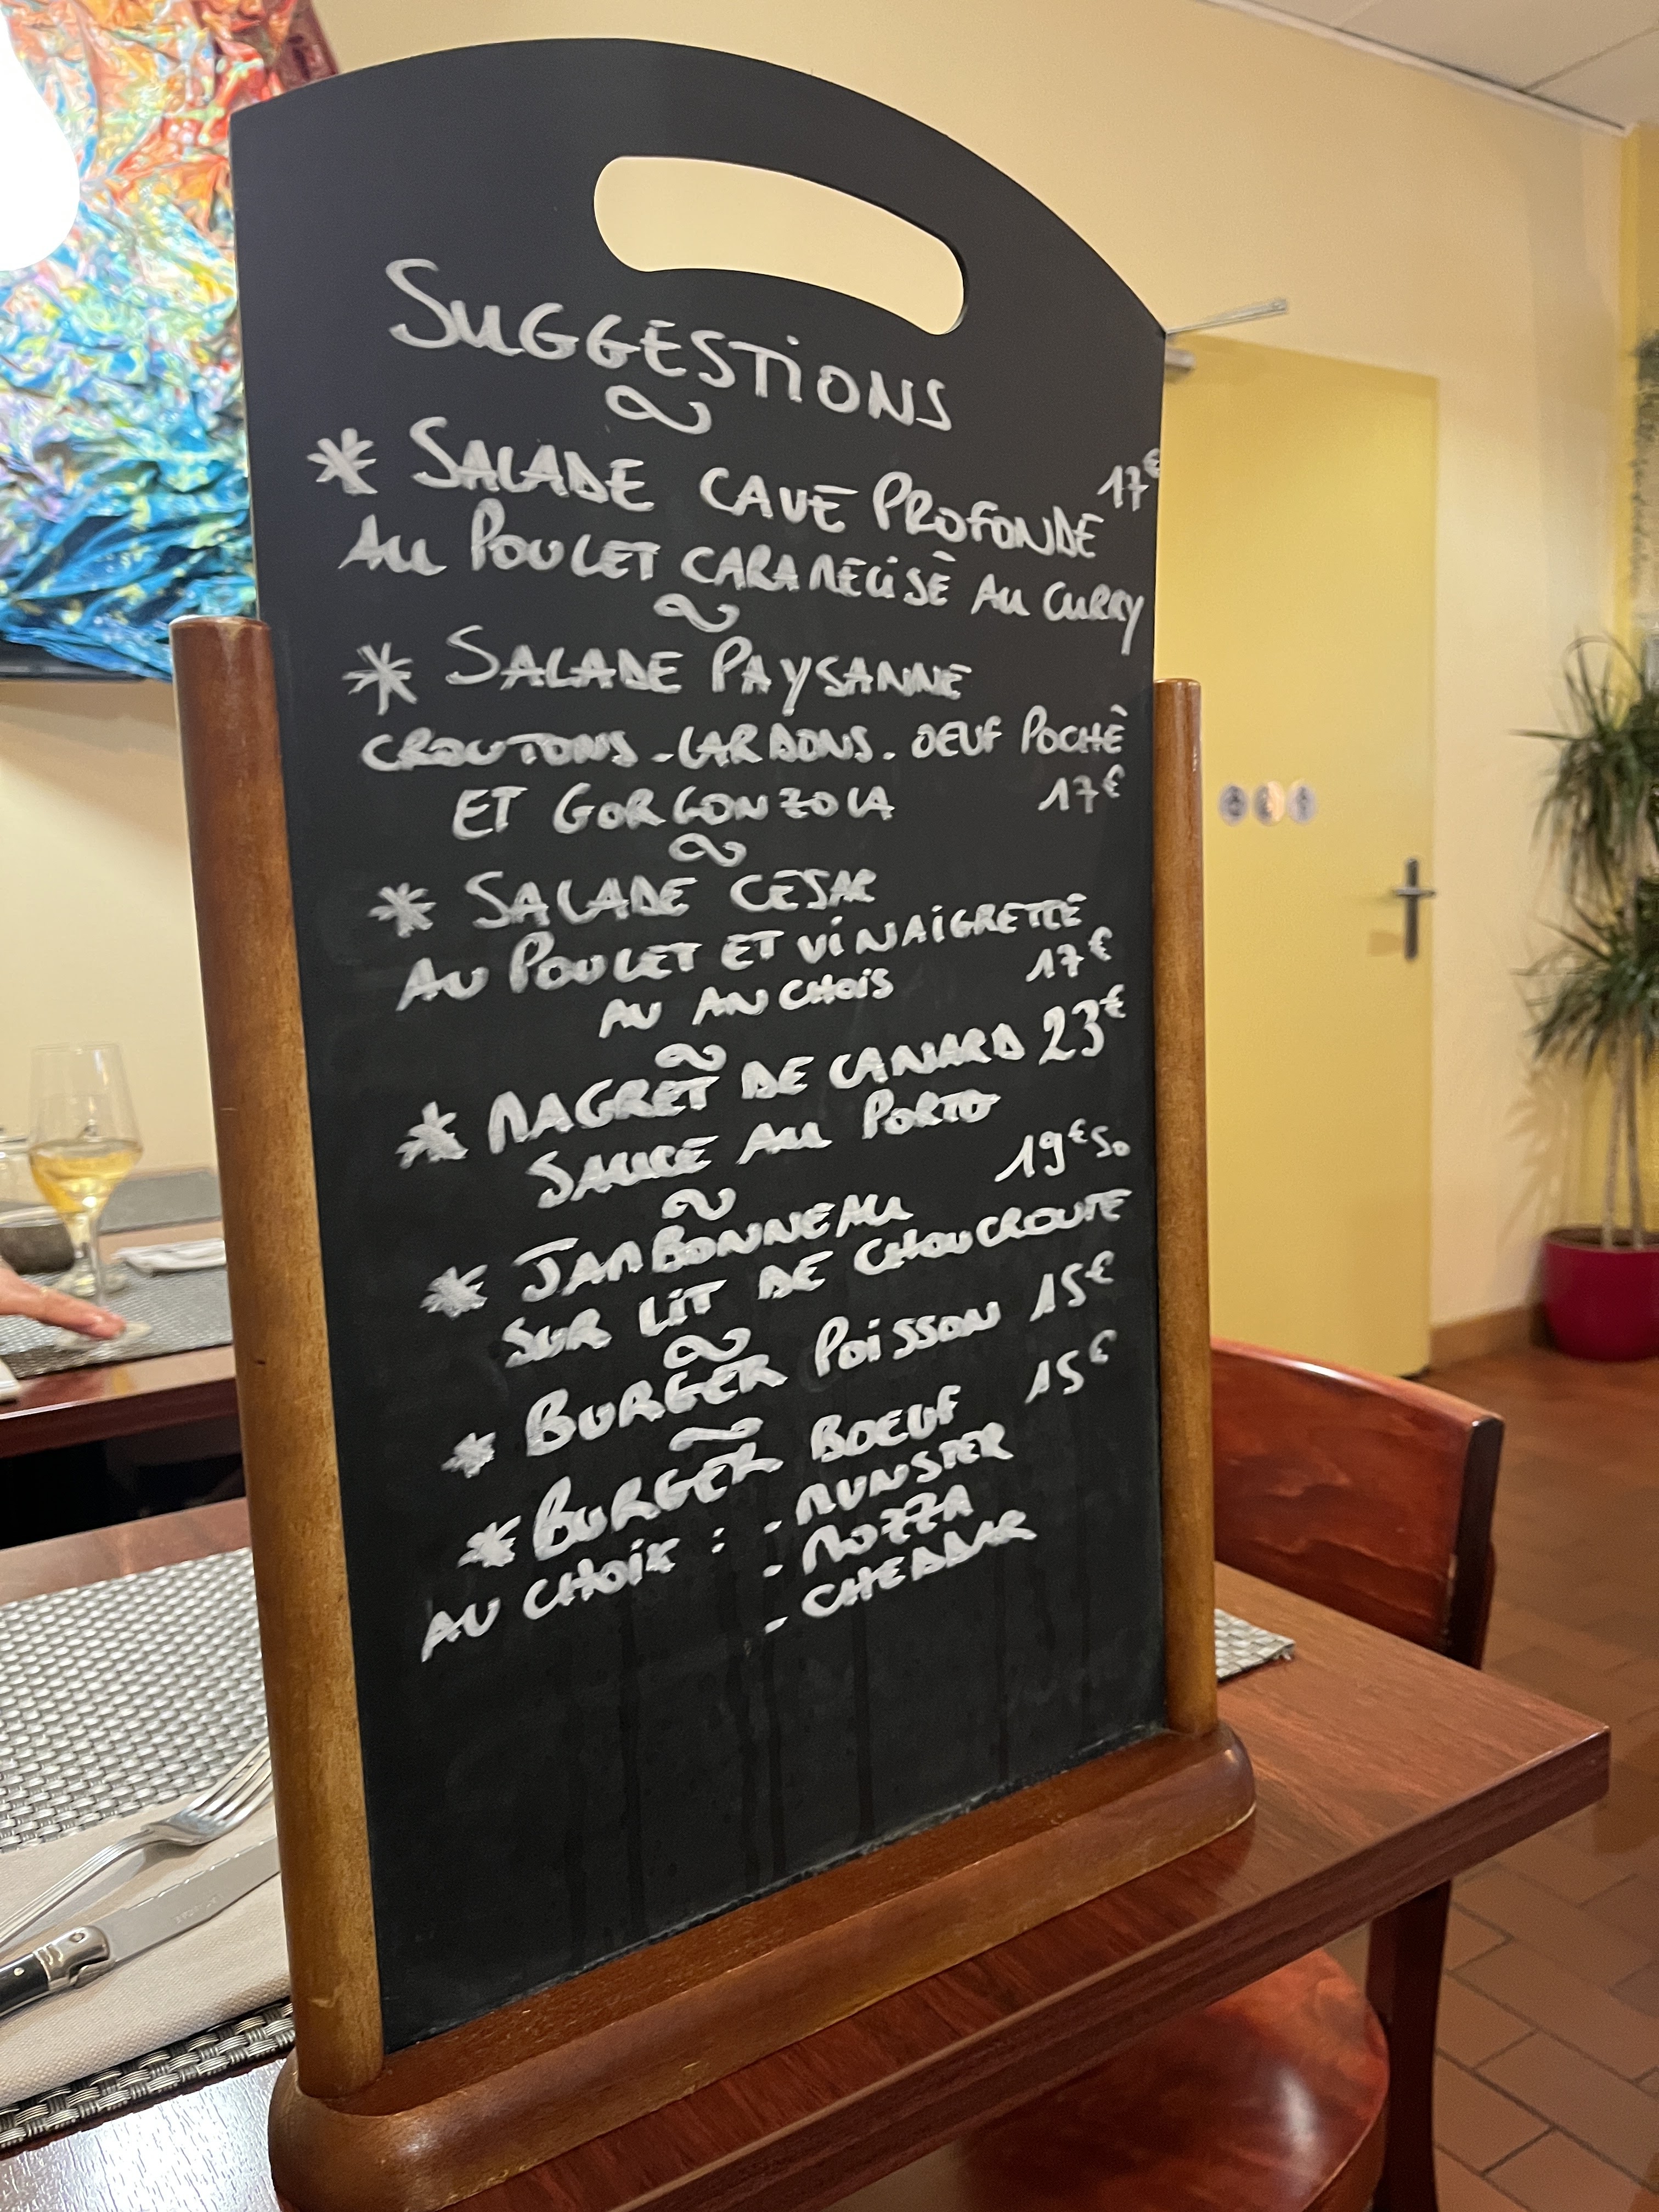 SUGGESTIONS
* SALADE CAVE PROFONDE 17€
AU POULET CARAMELISÉ AU CURRY
* SALADE PAYSANNE
CROUTONS - LARDONS - OEUF POCHÉ
ET GORGONZOLA 17€
* SALADE CESAR
AU POULET ET VINAIGRETTE
AU ANCHOIS 17€
* MAGRET DE CANARD 23€
SAUCE AU PORTO
* JAMBONNEAU 19€50
SUR LIT DE CHOUCROUTE
* BURGER POISSON 15€
* BURGER BOEUF 15€
AU CHOIX : - MUNSTER
- MOZZA
- CHEDDAR